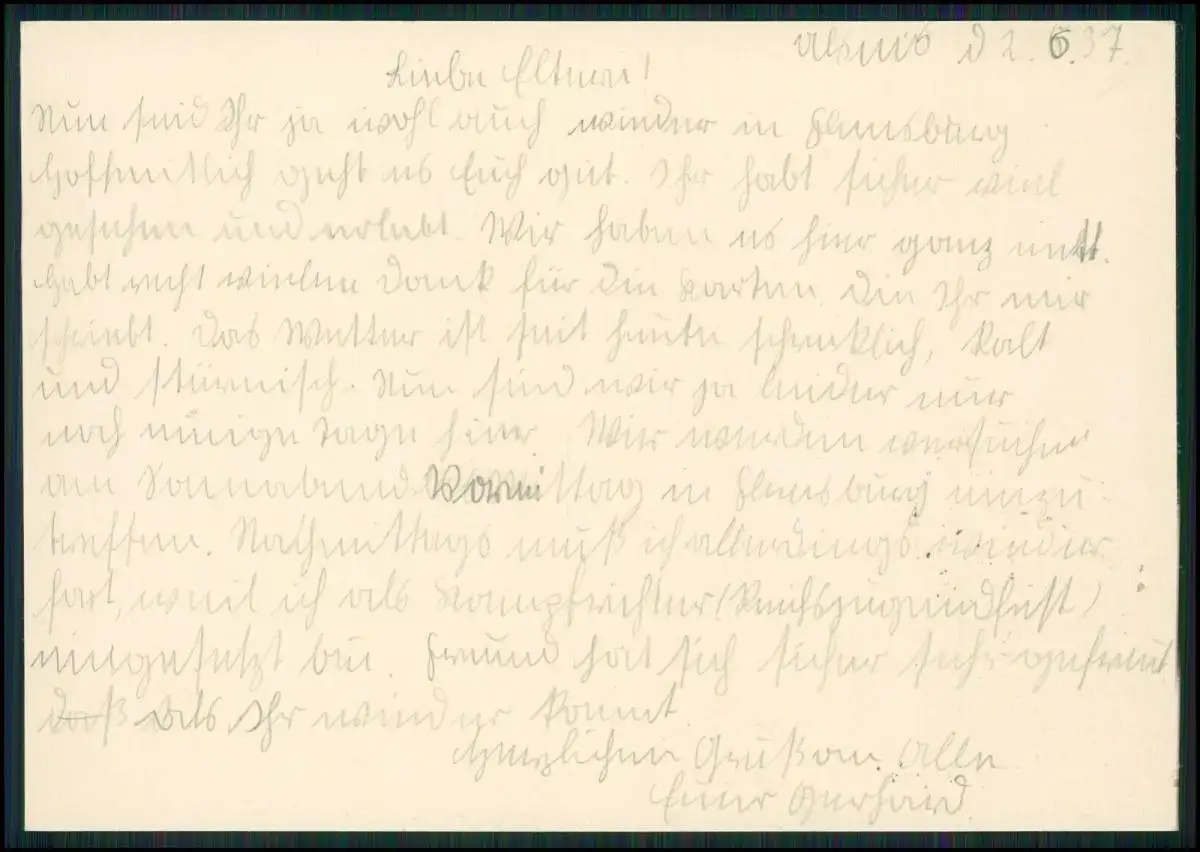 Arnis d 2. 6. 37.
Liebe Eltern!
Nun seid Ihr ja wohl auch wieder in Flensburg
Hoffentlich geht es Euch gut. Ihr habt sicher viel
gesehen und erlebt. Wir haben es hier ganz nett.
Habt recht vielen Dank für die Karten die Ihr mir
schriebt. Das Wetter ist seit heute schrecklich, kalt
und stürmisch. Nun sind wir ja leider nur
noch einige Tage hier. Wir werden versuchen
am Sonnabend Vormittag in Flensburg einzu
treffen. Nachmittags muß ich allerdings wieder
fort, weil ich als Kampfrichter (Reichsjugendfest)
eingesetzt bin. Freund hat sich sicher sehr gefreut
daß als Ihr wieder kamt.
Herzlichen Gruß an Alle
Euer Gerhard.